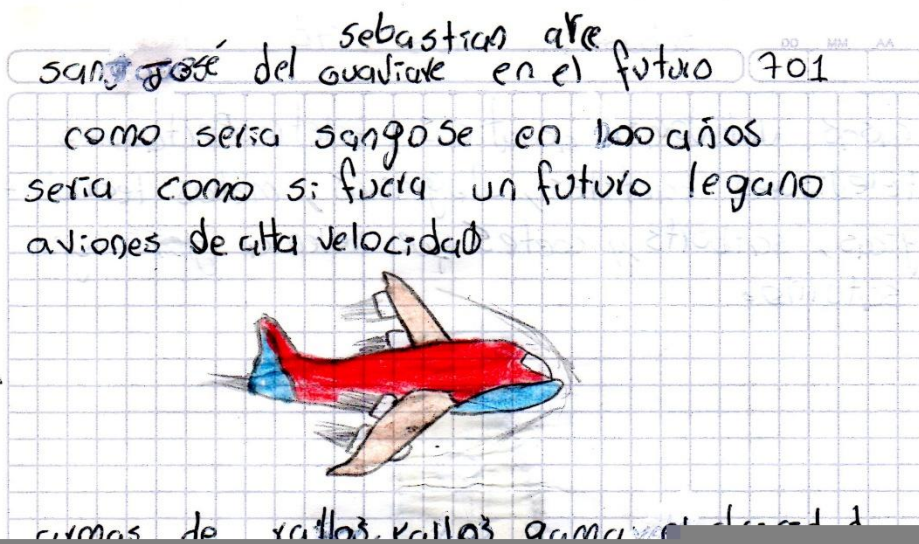 sebastian arce
san José del guaviare en el futuro 701
como seria sangose en 100 años
seria como si fuera un futuro legano
aviones de alta velocidad
armas de rallos rallos gama